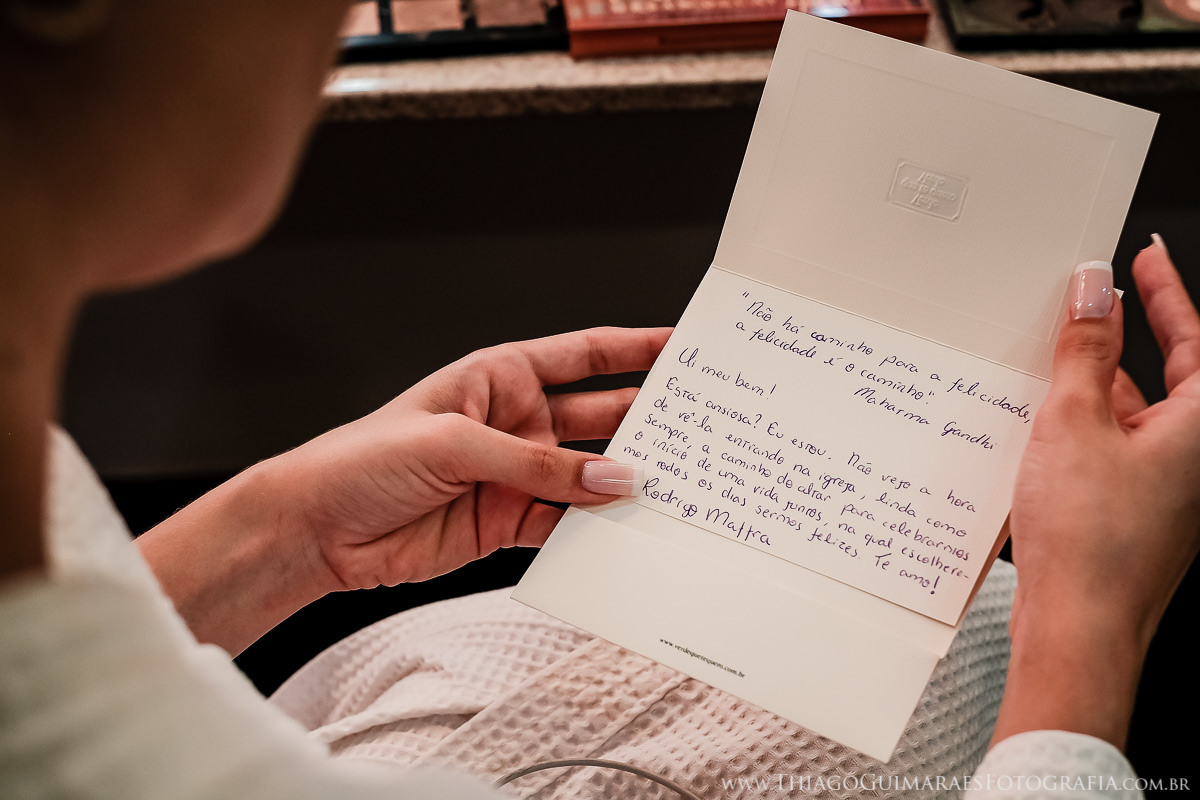 "Não há caminho para a felicidade,
a felicidade é o caminho."
Maharma Gandhi
Ui meu bem!
Está ansiosa? Eu estou. Não vejo a hora
de vê-la entrando na igreja, linda como
sempre, a caminho do altar para celebrarmos
o início de uma vida juntos, na qual escolhere-
mos todos os dias sermos felizes. Te amo!
Rodrigo Maffra
www.verdequerequero.com.br
www.ThiagoGuimaraesFotografia.com.br